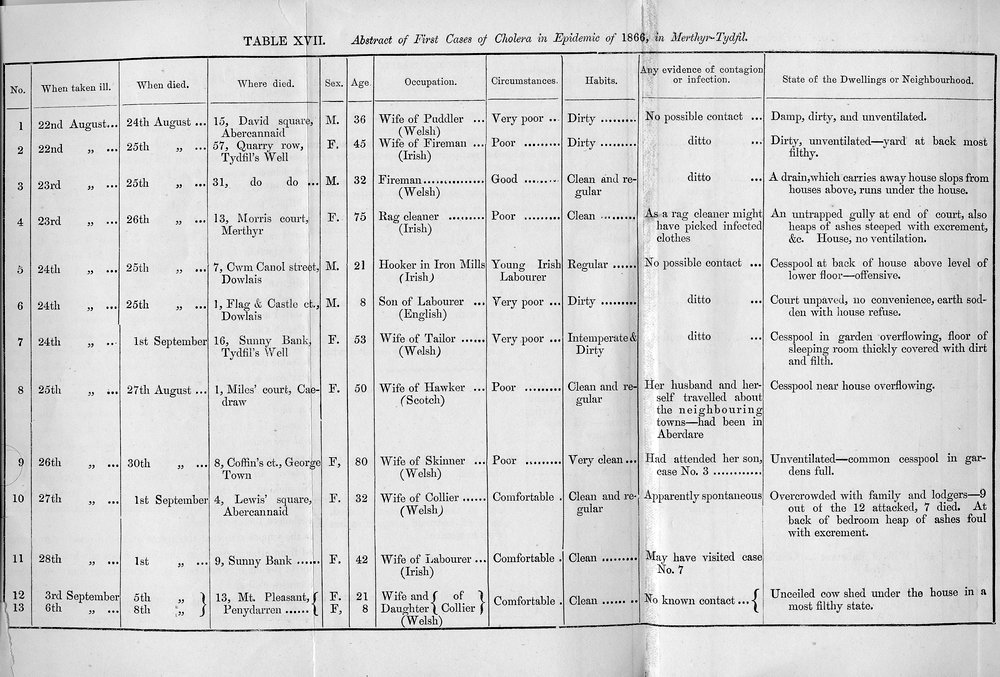 TABLE XVII. Abstract of First Cases of Cholera in Epidemic of 1866, in Merthyr-Tydfil.
No. When taken ill. When died. Where died. Sex. Age. Occupation. Circumstances. Habits. Any evidence of contagion or infection. State of the Dwellings or Neighbourhood.
1 22nd August... 24th August ... 15, David square, M. 36 Wife of Puddler ... Very poor ... Dirty ......... No possible contact ... Damp, dirty, and unventilated.
Abercannaid (Welsh)
2 22nd „ ... 25th „ ... 57, Quarry row, F. 45 Wife of Fireman ... Poor ......... Dirty ......... ditto ... Dirty, unventilated—yard at back most
Tydfil's Well (Irish) filthy.
3 23rd „ ... 25th „ ... 31, do do ... M. 32 Fireman............... Good ......... Clean and re- ditto ... A drain, which carries away house slops from
(Welsh) gular houses above, runs under the house.
4 23rd „ ... 26th „ ... 13, Morris court, F. 75 Rag cleaner ......... Poor ......... Clean ......... As a rag cleaner might An untrapped gully at end of court, also
Merthyr (Irish) have picked infected heaps of ashes steeped with excrement,
clothes &c. House, no ventilation.
5 24th „ ... 25th „ ... 7, Cwm Canol street, M. 21 Hooker in Iron Mills Young Irish Regular ...... No possible contact ... Cesspool at back of house above level of
Dowlais (Irish) Labourer lower floor—offensive.
6 24th „ ... 25th „ ... 1, Flag & Castle ct., M. 8 Son of Labourer ... Very poor ... Dirty ......... ditto ... Court unpaved, no convenience, earth sod-
Dowlais (English) den with house refuse.
7 24th „ ... 1st September 16, Sunny Bank, F. 53 Wife of Tailor ...... Very poor ... Intemperate & ditto ... Cesspool in garden overflowing, floor of
Tydfil's Well (Welsh) Dirty sleeping room thickly covered with dirt
and filth.
8 25th „ ... 27th August ... 1, Miles' court, Cae- F. 50 Wife of Hawker ... Poor ......... Clean and re- Her husband and her- Cesspool near house overflowing.
draw (Scotch) gular self travelled about
the neighbouring
towns—had been in
Aberdare
9 26th „ ... 30th „ ... 8, Coffin's ct., George F, 80 Wife of Skinner ... Poor ......... Very clean ... Had attended her son, Unventilated—common cesspool in gar-
Town (Welsh) case No. 3 ............ dens full.
10 27th „ ... 1st September 4, Lewis' square, F. 32 Wife of Collier ...... Comfortable . Clean and re- Apparently spontaneous Overcrowded with family and lodgers—9
Abercannaid (Welsh) gular out of the 12 attacked, 7 died. At
back of bedroom heap of ashes foul
with excrement.
11 28th „ ... 1st „ ... 9, Sunny Bank ...... F. 42 Wife of Labourer ... Comfortable . Clean ......... May have visited case
(Irish) No. 7
12 3rd September 5th „ } 13, Mt. Pleasant, { F. 21 Wife and { of } Comfortable . Clean ...... .. No known contact ... { Unceiled cow shed under the house in a
13 6th „ ... 8th „ } Penydarren ...... { F, 8 Daughter } Collier { most filthy state.
(Welsh)